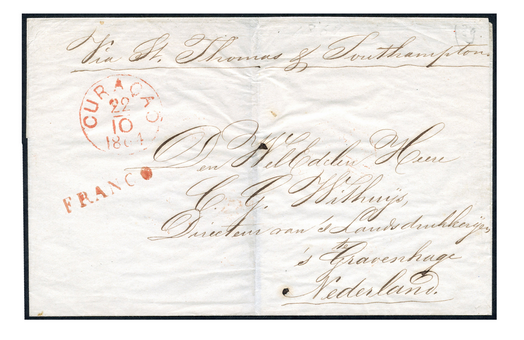 Via St. Thomas & Southampton
CURAÇAO
22
10
186
FRANCO
Den WelEdelen Heere
C. G. Withuijs,
Directeur van 's Landsdrukkerijen,
te
's Gravenhage
Nederland.